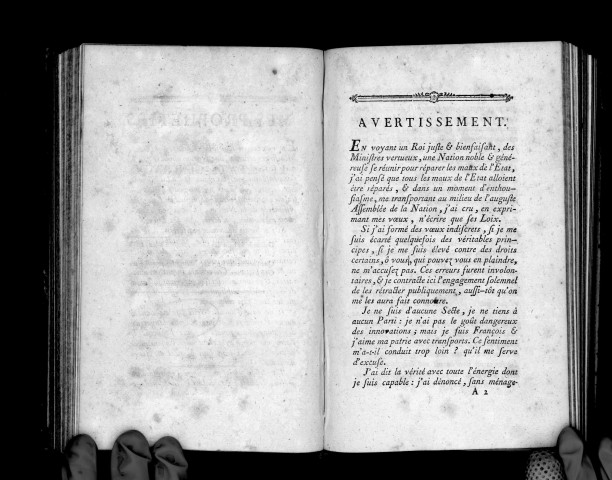 AVERTISSEMENT.
En voyant un Roi juste & bienfaisant, des
Ministres vertueux, une Nation noble & géné-
reuse se réunir pour réparer les maux de l'Etat,
j'ai pensé que tous les maux de l'Etat alloient
être réparés, & dans un moment d'enthou-
siasme, me transportant au milieu de l'auguste
Assemblée de la Nation, j'ai cru, en expri-
mant mes vœux, n'écrire que ses Loix.
Si j'ai formé des vœux indiscrets, si je me
suis écarté quelquefois des véritables prin-
cipes, si je me suis élevé contre des droits
certains, ô vous, qui pouvez vous en plaindre,
ne m'accusez pas. Ces erreurs furent involon-
taires, & je contracte ici l'engagement solemnel
de les rétracter publiquement, aussi-tôt qu'on
me les aura fait connoître.
Je ne suis d'aucune Secte, je ne tiens à
aucun Parti : je n'ai pas le goût dangereux
des innovations ; mais je suis François &
j'aime ma patrie avec transports. Ce sentiment
m'a-t-il conduit trop loin ? qu'il me serve
d'excuse.
J'ai dit la vérité avec toute l'énergie dont
je suis capable : j'ai dénoncé, sans ménage-
A 2